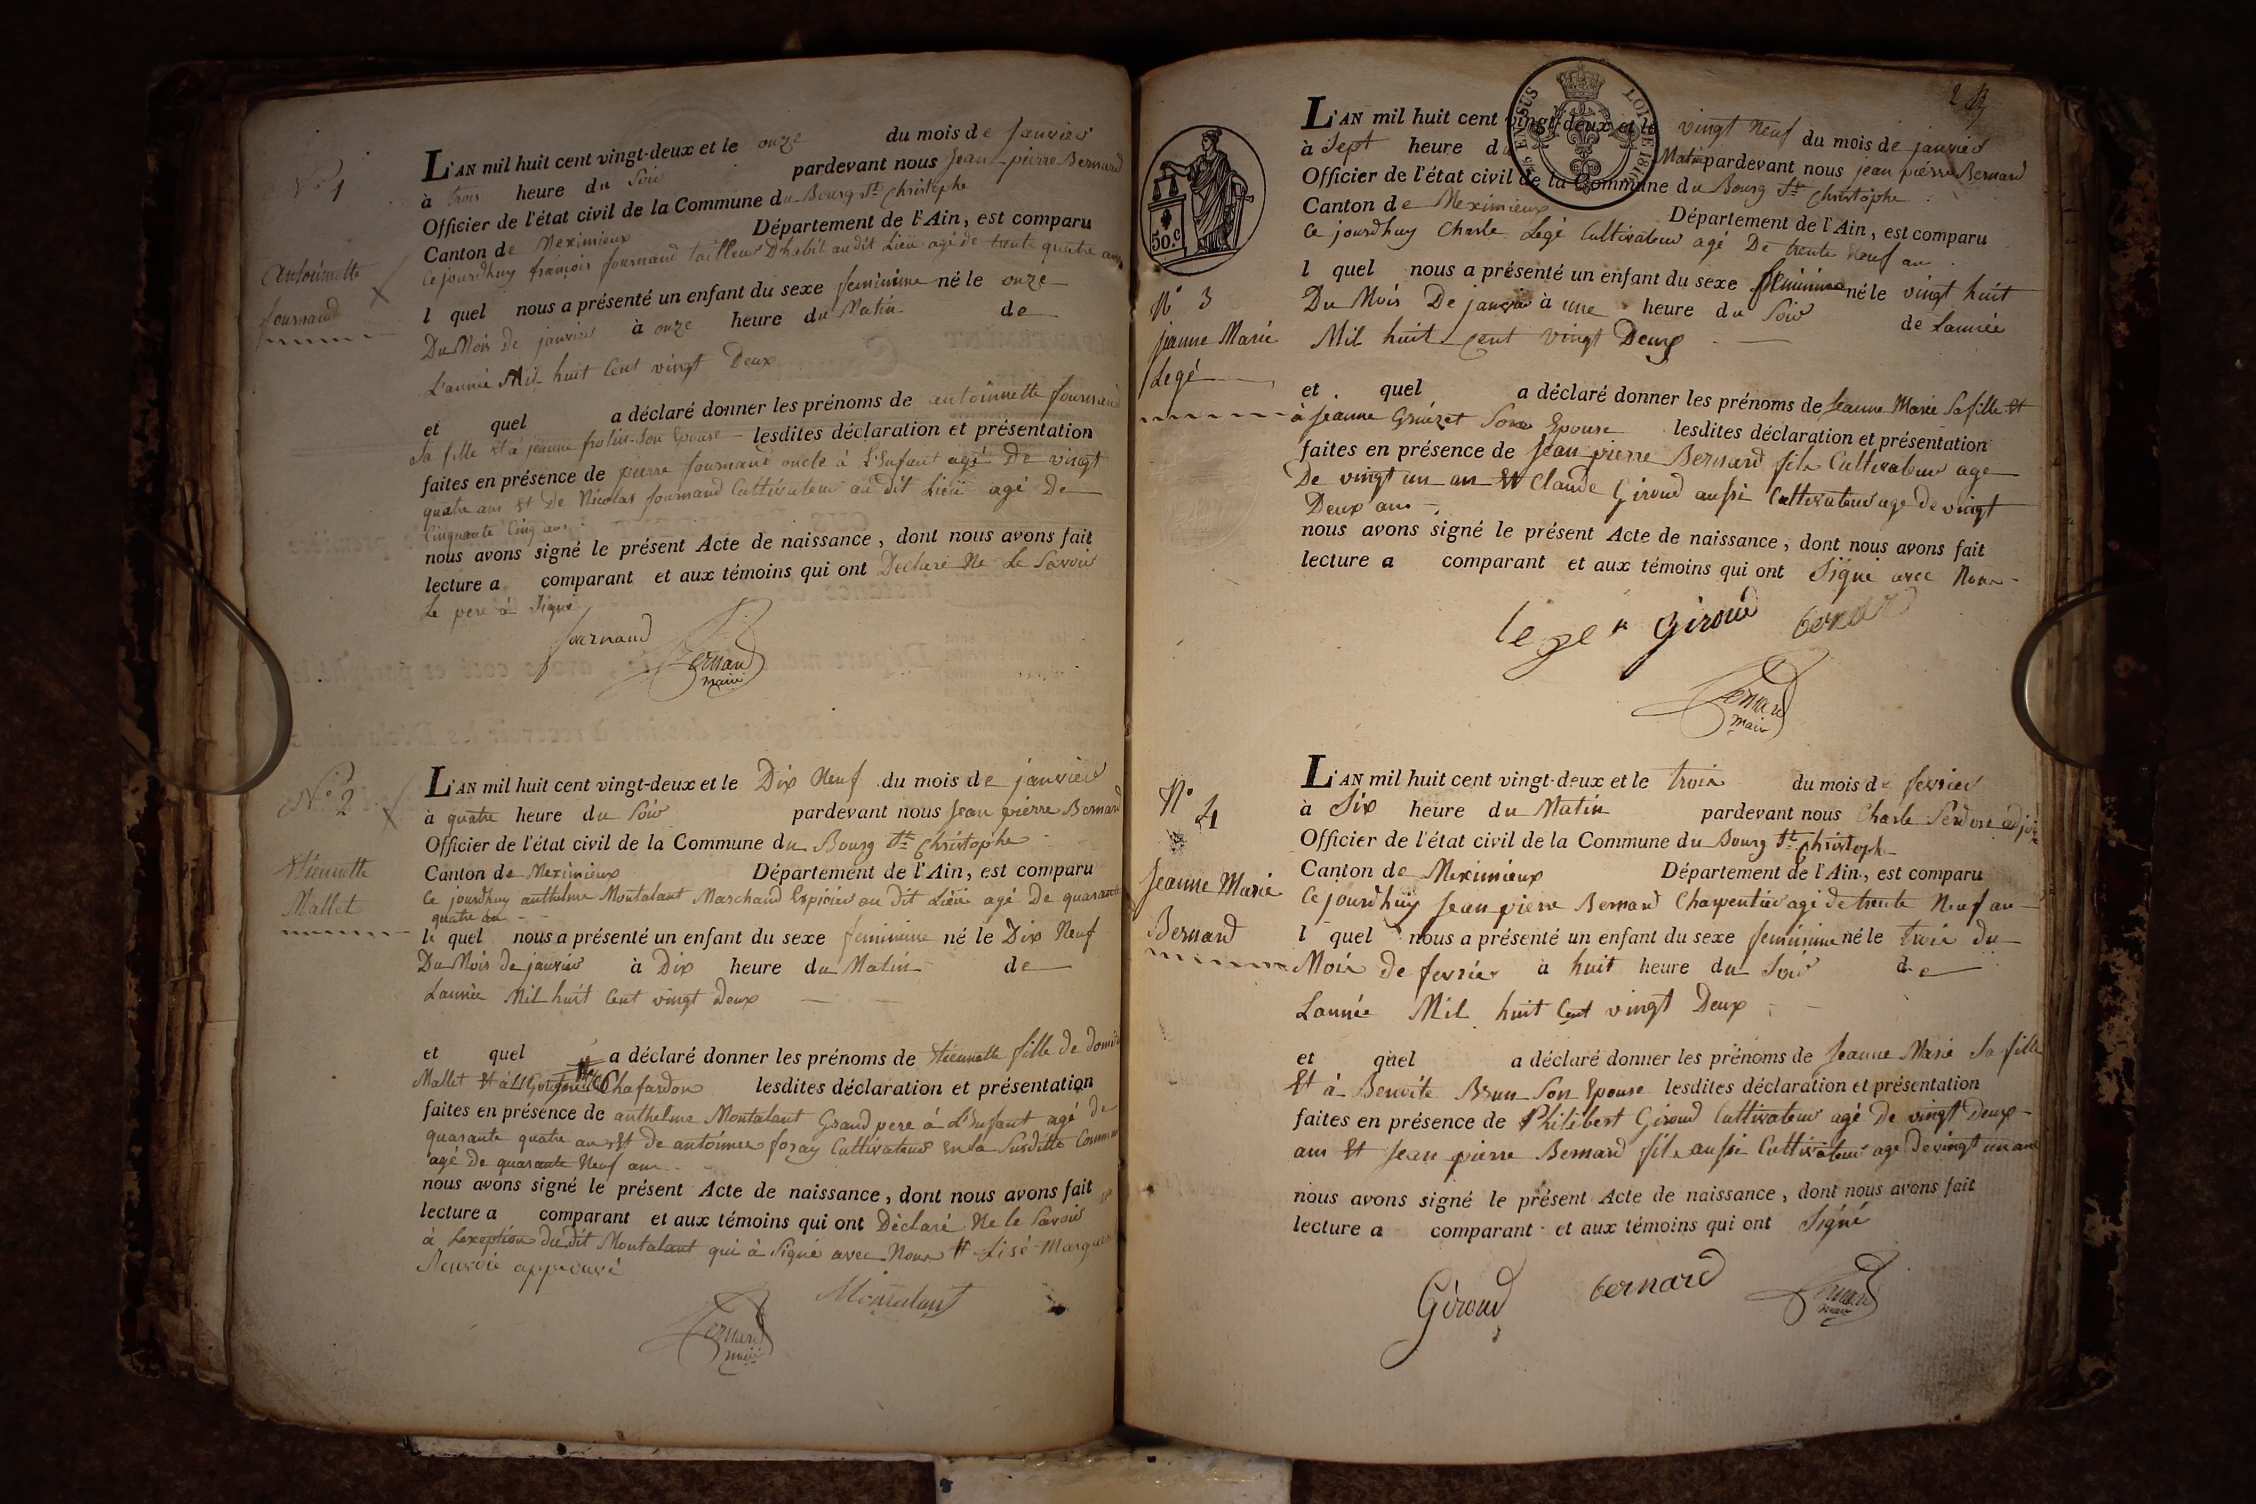 N° 1
Antoinette
fournand
L'AN mil huit cent vingt-deux et le onze du mois de janvier
à trois heure du soir pardevant nous Jean pierre Bernard
Officier de l'état civil de la Commune du Bourg St Christophe
Canton de Meximieux Département de l'Ain, est comparu
Ce jourdhuy françois fournand tailleur Dhabit au dit Lieu agé de trente quatre ans
l quel nous a présenté un enfant du sexe feminine né le onze
Du Mois de janvier à onze heure du Matin de
L'année Mil huit Cent vingt Deux
et quel a déclaré donner les prénoms de antoinette fournand
Sa fille Et à jeanne Son Epouse lesdites déclaration et présentation
faites en présence de pierre fournand oncle à L'Enfant agé De vingt
quatre ans Et De Nicolas fournand Cultivateur au dit Lieu agé De
Cinquante Cinq ans
nous avons signé le présent Acte de naissance, dont nous avons fait
lecture a comparant et aux témoins qui ont Declaré Ne Le Savoir
Le pere à Signé
fournand Bernard
maire
N° 2
Etiennette
Mallet
L'AN mil huit cent vingt-deux et le Dix Neuf du mois de janvier
à quatre heure du Soir pardevant nous Jean pierre Bernard
Officier de l'état civil de la Commune du Bourg St Christophe
Canton de Meximieux Département de l'Ain, est comparu
Ce jourdhuy anthelme Montalant Marchand Espicier au dit Lieu agé De quarante
quatre an
le quel nous a présenté un enfant du sexe feminine né le Dix Neuf
Du Mois de janvier à Dix heure du Matin de
Lannée Mil huit Cent vingt Deux
et quel a déclaré donner les prénoms de Etiennette fille de
Mallet Et à Chafardon lesdites déclaration et présentation
faites en présence de anthelme Montalant Grand pere à L'Enfant agé de
quarante quatre an Et de antoinne foray Cultivateur en la Susditte Commune
agé de quarante Neuf ans
nous avons signé le présent Acte de naissance, dont nous avons fait
lecture a comparant et aux témoins qui ont Déclaré Ne le Savoir
à Lexeption du dit Montalant qui à Signé avec Nous
approuvé
Montalant
Bernard
maire
2
50.C
N° 3
jeanne Marie
Legé
L'AN mil huit cent vingt-deux et le vingt Neuf du mois de janvier
à Sept heure du Matin pardevant nous jean pierre Bernard
Officier de l'état civil de la Commune du Bourg St Christophe
Canton de Meximieux Département de l'Ain, est comparu
Ce jourdhuy Charle Legé Cultivateur agé De trente Neuf an
l quel nous a présenté un enfant du sexe feminine né le vingt huit
Du Mois De janvier à une heure du Soir de Lannée
Mil huit Cent vingt Deux
et quel a déclaré donner les prénoms de Jeanne Marie Sa fille Et
à Jeanne Son Epouse lesdites déclaration et présentation
faites en présence de Jean pierre Bernard fils Cultivateur age
De vingt un an Et Claude Giroud aussi Cultivateur age de vingt
Deux ans
nous avons signé le présent Acte de naissance, dont nous avons fait
lecture a comparant et aux témoins qui ont Signé avec Nous
Giroud bernard
Bernard
maire
N° 4
Jeanne Marie
Bernard
L'AN mil huit cent vingt-deux et le trois du mois de fevrier
à Six heure du Matin pardevant nous Charle
Officier de l'état civil de la Commune du Bourg St Christophe
Canton de Meximieux Département de l'Ain, est comparu
Ce jourdhuy Jean pierre Bernard Charpentier agé de trente Neuf an
l quel nous a présenté un enfant du sexe feminine né le trois du
Mois de fevrier à huit heure du Soir de
Lannée Mil huit Cent vingt Deux
et quel a déclaré donner les prénoms de Jeanne Marie Sa fille
Et à Benoite Brun Son Epouse lesdites déclaration et présentation
faites en présence de Philibert Giroud Cultivateur agé De vingt Deux
ans Et Jean pierre Bernard fils aussi Cultivateur agé De vingt un ans
nous avons signé le présent Acte de naissance, dont nous avons fait
lecture a comparant et aux témoins qui ont Signé
Giroud bernard Bernard
maire